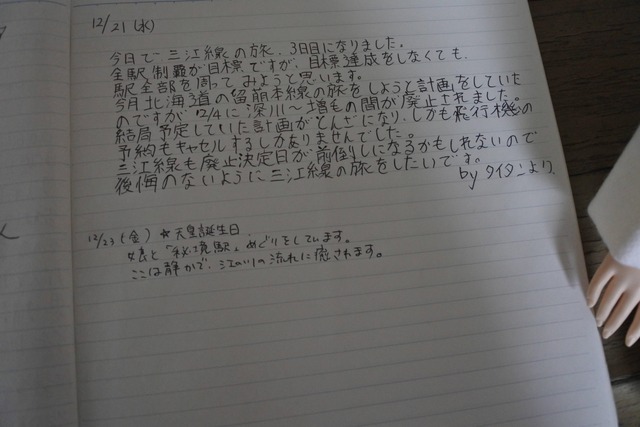 12/21(水)
今日で三江線の旅、3日目になりました。
全駅制覇が目標ですが、目標達成をしなくても、
駅全部を周ってみようと思います。
今月北海道の留萌本線の旅をしようと計画をしていた
のですが 12/4に深川〜増毛の間が廃止されました。
結局予定していた計画がとんざになり、しかも飛行機の
予約もキャセルするしかありませんでした。
三江線も廃止決定日が前倒しになるかもしれないので
後悔のないように三江線の旅をしたいです。
by タイタンより、
12/23(金) ☆天皇誕生日、
と「秘境駅」めぐりをしています。
ここは静かで、江の川の流れに癒されます。